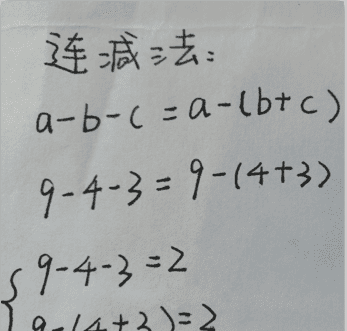 连减法:
a-b-c=a-(b+c)
9-4-3=9-(4+3)
9-4-3=2
9-(4+3)=2